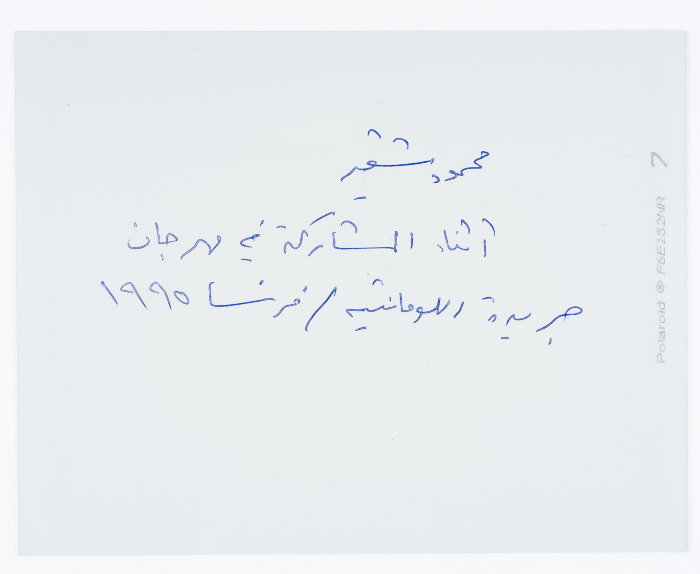 محمود شقير
أثناء المشاركة في مهرجان
جريدة اللومانتيه / فرنسا ١٩٩٥
Polaroid ® F6E132NA 7